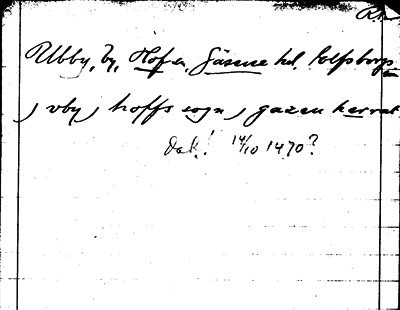 Rn
Ubby, by, Hof sn, Gäsene hd, Elfsborgs
j vby j hoffs sogn j gazen herrat
dal! 14/10 1470?